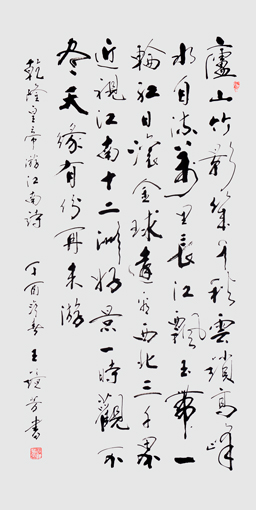 廬山竹影几千秋雲鎖高峰
水自流萬里長江飄玉帶一
輪紅日滾金球遠望西北三千界
近視江南十二洲好景一時觀不
盡天緣有份再來游
乾隆皇帝游江南詩 丁酉 春 王 芳書